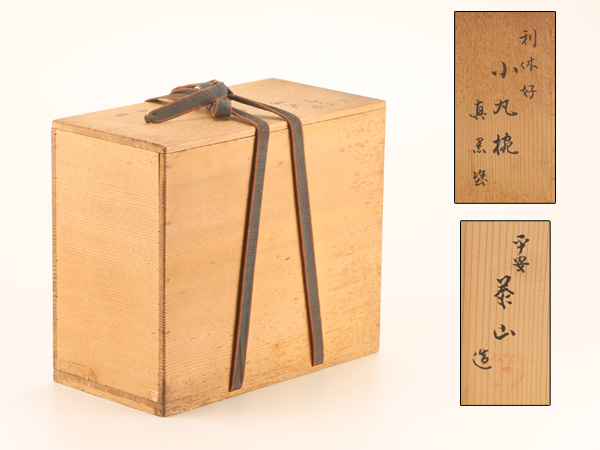 利休好
小丸椀
真黒塗
平安
泰山
造